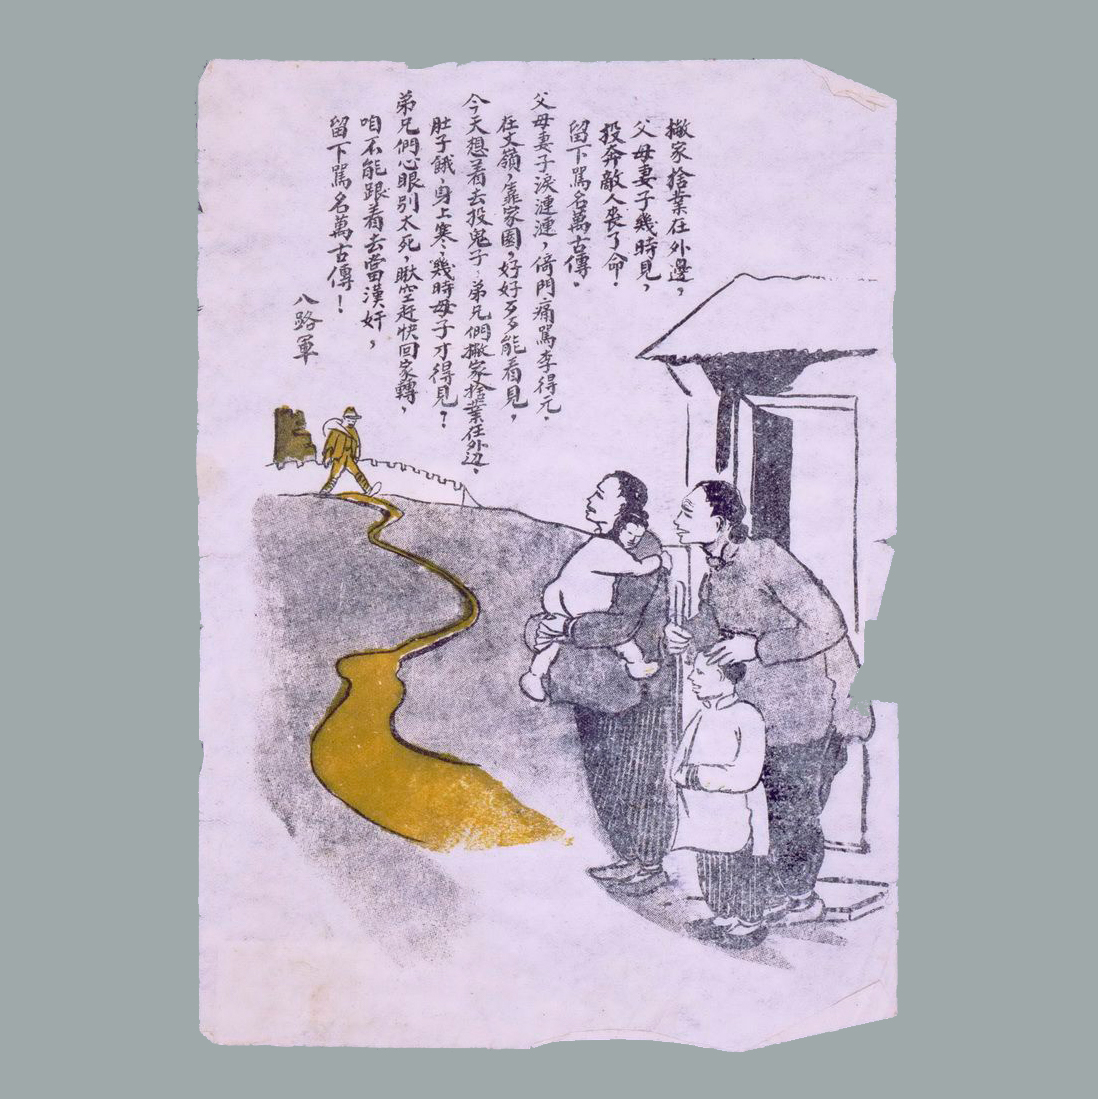 撇家捨業在外邊，
父母妻子幾時見，
投奔敵人丧了命．
留下罵名萬古傳．
父母妻子淚漣漣，倚門痛罵李得元．
在文嶺，靠家園，好好歹歹能看見，
今天想着去投鬼子．弟兄們撇家捨業在外边．
肚子餓，身上寒，幾時母子才得見？
弟兄們心眼别太死，瞅空赶快回家轉，
咱不能跟着去當漢奸，
留下罵名萬古傳！
八路軍